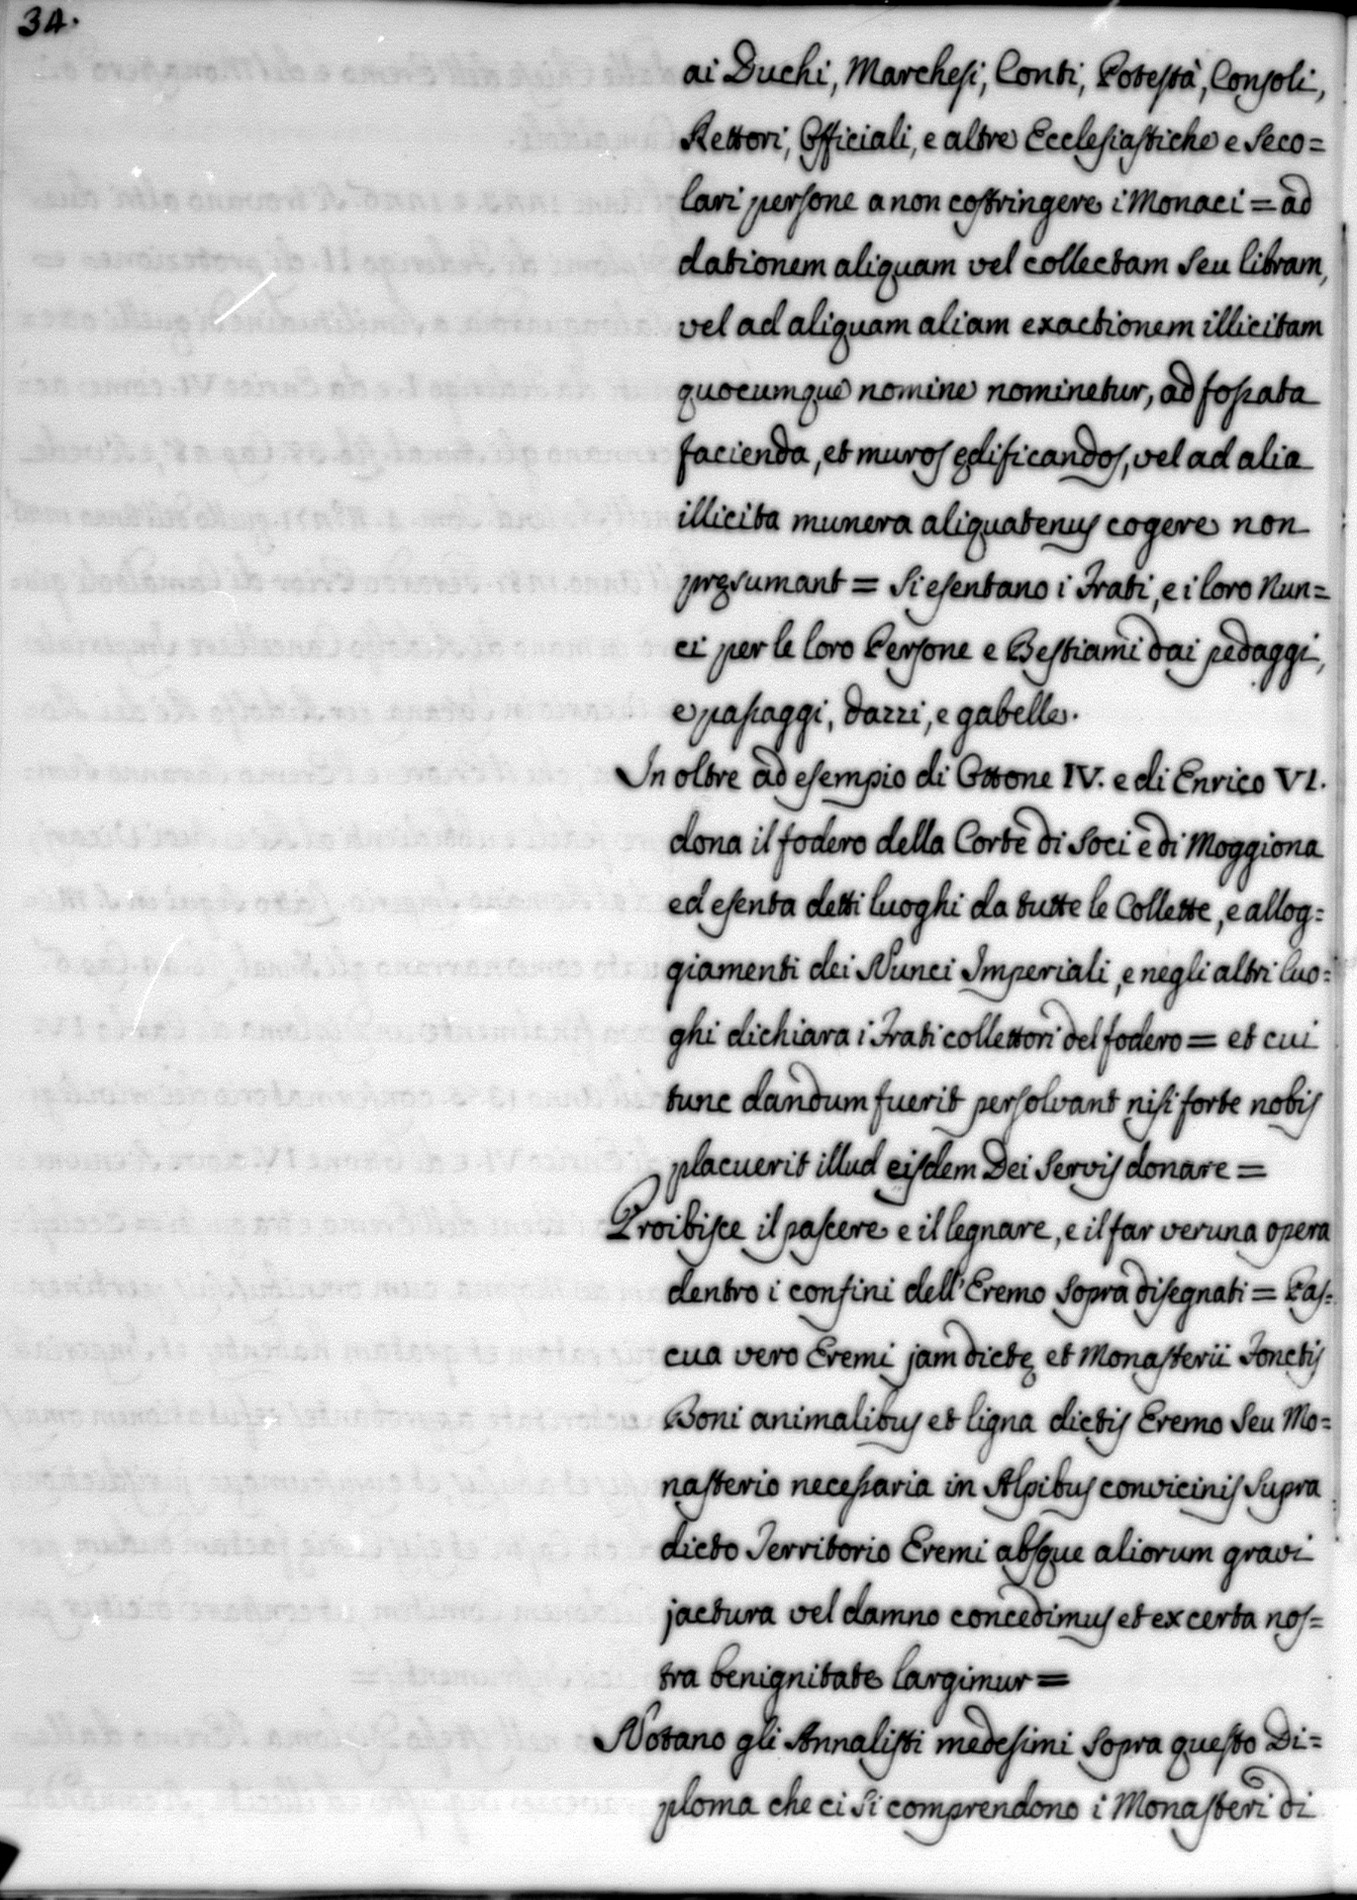 34.
ai Duchi, Marchesi, Conti, Potestà, Consoli,
Rettori, Officiali, e altre Ecclesiastiche e seco=
lari persone a non costringere i Monaci = ad
dationem aliquam vel collectam seu libram,
vel ad aliquam aliam exactionem illicitam
quocumque nomine nominetur, ad fossata
facienda, et muros ędificandos, vel ad alia
illicita munera aliquatenus cogere non
pręsumant = si esentano i Frati, e i loro Nun=
ci per le loro Persone e Bestiami dai pedaggi,
e passaggi, dazzi, e gabelle.
In oltre ad esempio di Ottone IV. e di Enrico VI.
dona il fodero della Corte di Soci e di Moggiona
ed esenta detti luoghi da tutte le Collette, e allog=
giamenti dei Nunci Imperiali, e negli altri luo=
ghi dichiara i Frati collettori del fodero = et cui
tunc dandum fuerit persolvant nisi forte nobis
placuerit illud eisdem Dei Servis donare =
Proibisce il pascere e il legnare, e il far veruna opera
dentro i confini dell'Eremo sopra disegnati = Pas=
cua vero Eremi jam dictę et Monasterii Fonctis
Boni animalibus et ligna dictis Eremo seu Mo=
nasterio necessaria in Alpibus convicinis supra
dicto Territorio Eremi absque aliorum gravi
jactura vel damno concedimus et ex certa nos=
tra benignitate largimur =
Notano gli Annalisti medesimi sopra questo Di=
ploma che ci si comprendono i Monasteri di